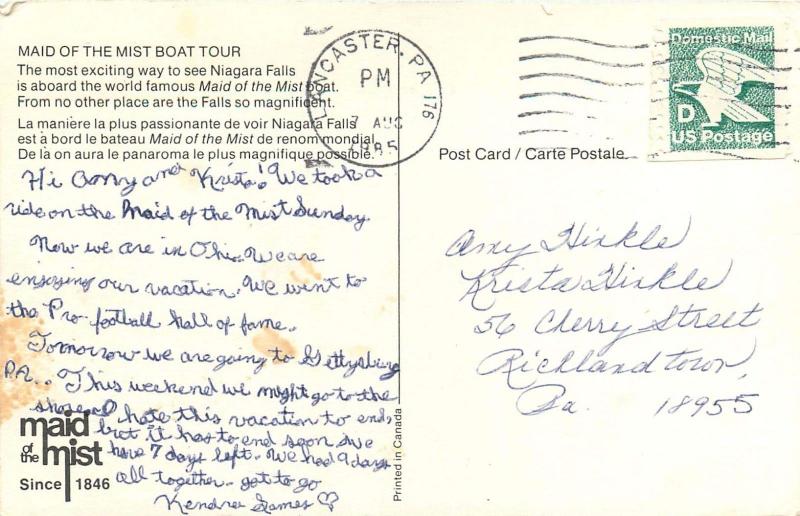 MAID OF THE MIST BOAT TOUR
The most exciting way to see Niagara Falls
is aboard the world famous Maid of the Mist boat.
From no other place are the Falls so magnificent.
La manière la plus passionante de voir Niagara Falls
est à bord le bateau Maid of the Mist de renom mondial.
De là on aura le panaroma le plus magnifique possible.
LANCASTER, PA 176
PM
7 AUG
1985
Domestic Mail
D
US Postage
Post Card / Carte Postale
Hi Amy and Krista! We took a
ride on the Maid of the Mist Sunday.
Now we are in Ohio. We are
enjoying our vacation. We went to
the Pro-football hall of fame.
Tomorrow we are going to Gettysburg
PA.. This weekend we might go to the
shore. I hate this vacation to end,
but it has to end soon. We
have 7 days left. We had 9 days
all together. got to go
Kendra James ♡
Amy Hinkle
Krista Hinkle
56 Cherry Street
Richlandtown,
Pa. 18955
maid
of the mist
Since 1846
Printed in Canada